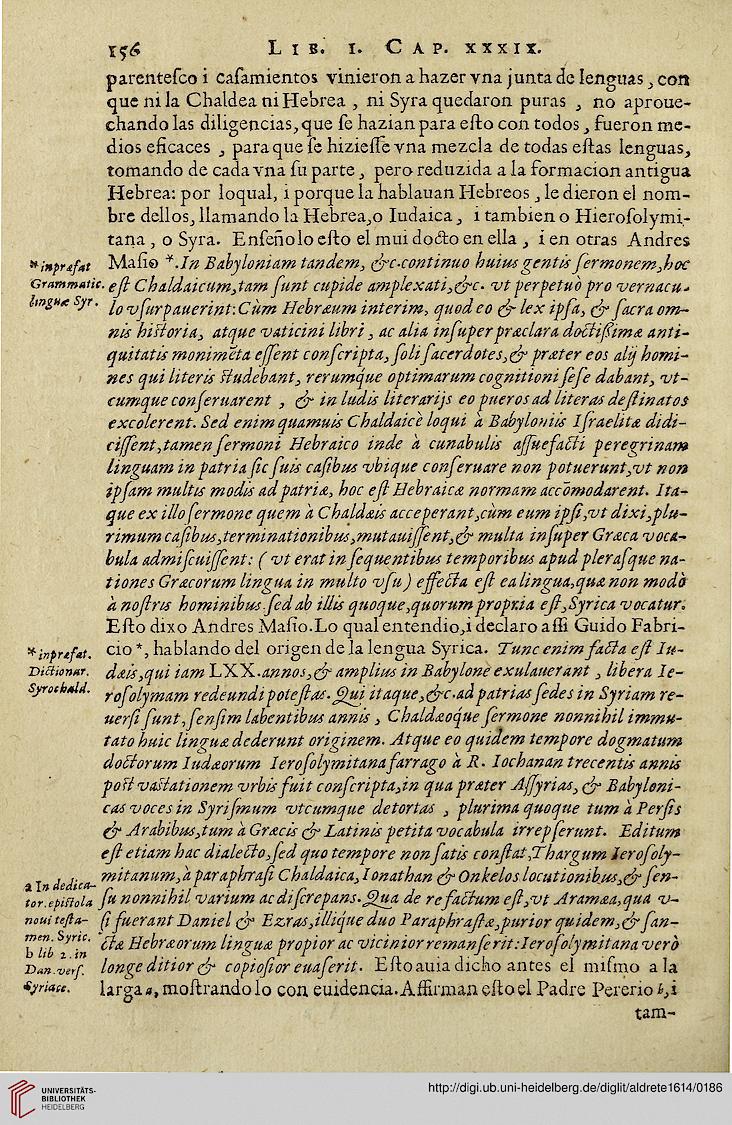 156 LIB. I. CAP. XXXIX.
parenteſco i caſamientos vinieron a hazer vna junta de lenguas, con
que ni la Chaldea ni Hebrea, ni Syra quedaron puras, no aproue-
chando las diligencias, que ſe hazian para eſto con todos, fueron me-
dios eficaces, para que ſe hizieſſe vna mezcla de todas eſtas lenguas,
tomando de cada vna ſu parte, pero reduzida a la formacion antigua
Hebrea: por loqual, i porque la hablauan Hebreos, le dieron el nom-
bre dellos, llamando la Hebrea, o Iudaica, i tambien o Hieroſolymi-
tana, o Syra. Enſeñolo eſto el mui docto en ella, i en otras Andres
*in præfat Maſio *. In Babyloniam tandem, &c. continuo huius gentis ſermonem, hoc
Grammatic. eſt Chaldaicum, tam ſunt cupide amplexati, &c. vt perpetuò pro vernacu-
linguæ Syr. lo vſurpauerint: Cùm Hebræum interim, quod eo & lex ipſa, & ſacra om-
nis hiſtoria, atque vaticini libri, ac alia inſuper præclara doctiſſimæ anti-
quitatis monimēta eſſent conſcripta, ſoli ſacerdotes, & præter eos alij homi-
nes qui literis ſtudebant, rerumque optimarum cognitioni ſeſe dabant, vt-
cumque conſeruarent, & in ludis literarijs eo pueros ad literas deſtinatos
excolerent. Sed enim quamuis Chaldaicè loqui à Babyloniis Iſraelitæ didi-
ciſſent, tamen ſermoni Hebraico inde à cunabulis aſſuefacti peregrinam
linguam in patria ſic ſuis caſibus vbique conſeruare non potuerunt, vt non
ipſam multis modis ad patriæ, hoc eſt Hebraicæ normam accōmodarent. Ita-
que ex illo ſermone quem à Chaldæis acceperant, cùm eum ipſi, vt dixi, plu-
rimum caſibus, terminationibus, mutauiſſent, & multa inſuper Græca voca-
bula admiſcuiſſent: (vt erat in ſequentibus temporibus apud pleraſque na-
tiones Græcorum lingua in multo vſu) effecta eſt ea lingua, quæ non modò
à noſtris hominibus ſed ab illis quoque, quorum propria eſt, Syrica vocatur.
Eſto dixo Andres Maſio. Lo qual entendio, i declaro aſſi Guido Fabri-
*in præfat. cio *, hablando del origen de la lengua Syrica. Tunc enim facta eſt Iu-
Dictionar. dæis, qui iam LXX. annos, & amplius in Babylone exulauerant, libera Ie-
Syrochald. roſolymam redeundi poteſtas. Qui itaque, &c. ad patrias ſedes in Syriam re-
uerſi ſunt, ſenſim labentibus annis, Chaldæoq́ue ſermone nonnihil immu-
tato huic linguæ dederunt originem. Atque eo quidem tempore dogmatum
doctorum Iudæorum Ieroſolymitana farrago à R. Iochanan trecentis annis
poſt vaſtationem vrbis fuit conſcripta, in qua præter Aſſyrias, & Babyloni-
cas voces in Syriſmum vtcumque detortas, plurima quoque tum à Perſis
& Arabibus, tum à Græcis & Latinis petita vocabula irrepſerunt. Editum
eſt etiam hac dialecto, ſed quo tempore non ſatis conſtat, Thargum Ieroſoly-
a In dedica- mitanum, à paraphraſi Chaldaica, Ionathan & Onkelos locutionibus, & ſen-
tor. epiſtola ſu nonnihil varium ac diſcrepans. Qua de re factum eſt, vt Aramæa, qua v-
noui teſta- ſi fuerant Daniel & Ezras, illique duo Paraphraſtæ, purior quidem, & ſan-
men. Syric. ctæ Hebræorum linguæ propior ac vicinior remanſerit: Ieroſolymitana verò
b lib 2. in
Dan. verſ. longe ditior & copioſior euaſerit. Eſto auia dicho antes el miſmo a la
Syriace. larga a, moſtrandolo con euidencia. Affirman eſto el Padre Pererio b, i
tam-
UNIVERSITÄTS-
BIBLIOTHEK
HEIDELBERG
http://digi.ub.uni-heidelberg.de/diglit/aldrete1614/0186